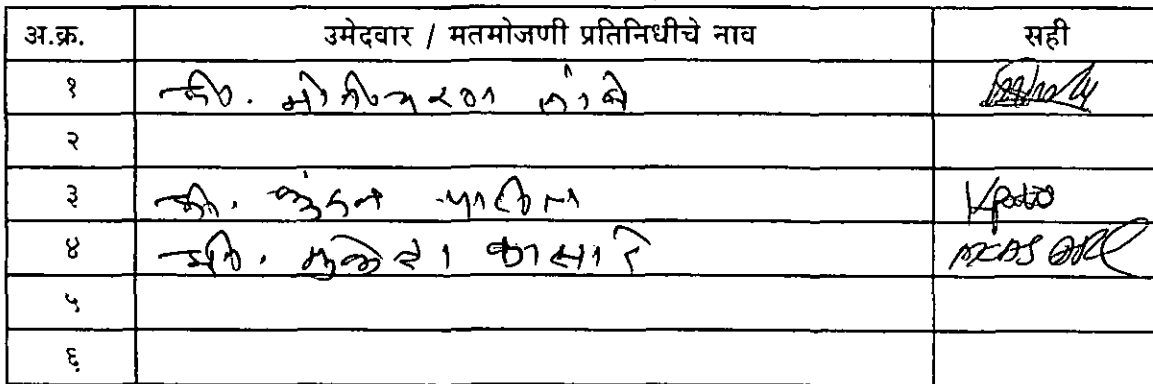 अ.क्र. उमेदवार / मतमोजणी प्रतिनिधीचे नाव सही
१ श्री.
२
३ श्री. कुंदन पाटील
४ श्री. मुकेश कासारे
५
६